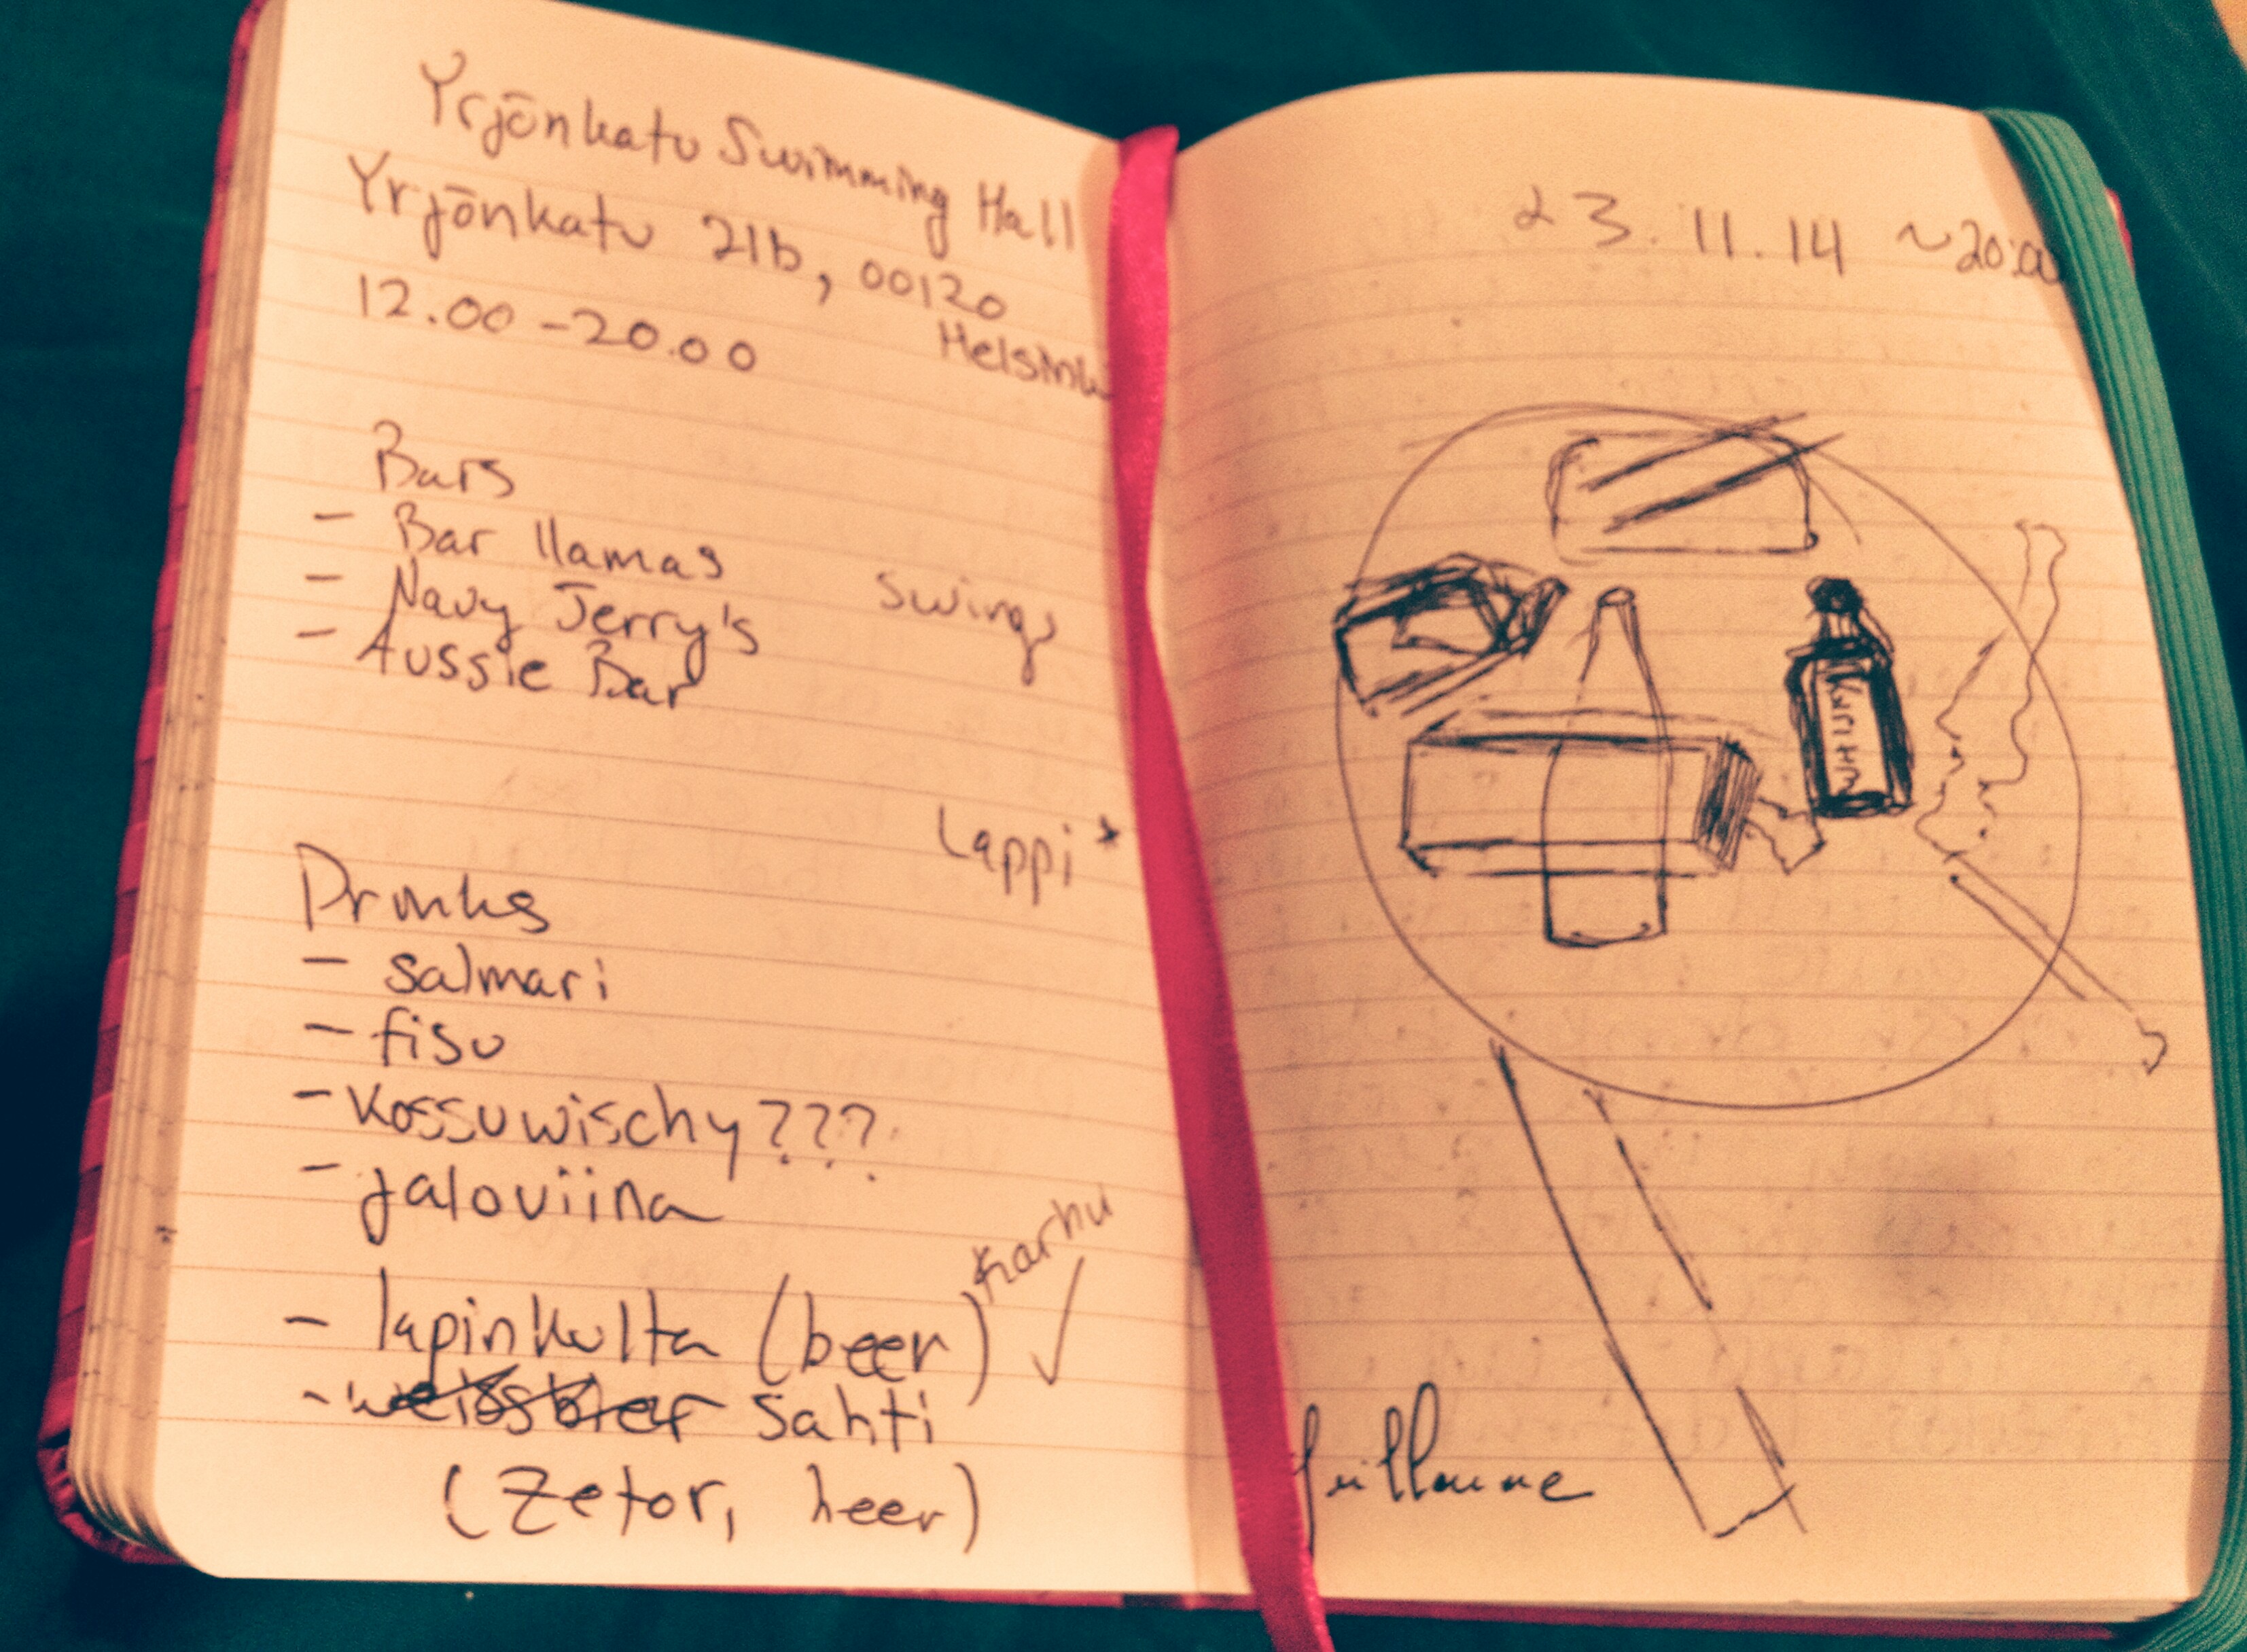 Yrjōnkatu Swimming Hall
Yrjōnkatu 21b, 00120
Helsinki
12.00-20.00
Bars
- Bar llamas
- Navy Jerry's
swings
- Aussie Bar
Lappi *
Drinks
- salmari
- fisu
- kossuwischy???
- jaloviina
karhu
- lapinkulta (beer) ✓
- weissbier sahti
(Zetor, heer)
23.11.14 ~20:00
Guillaume